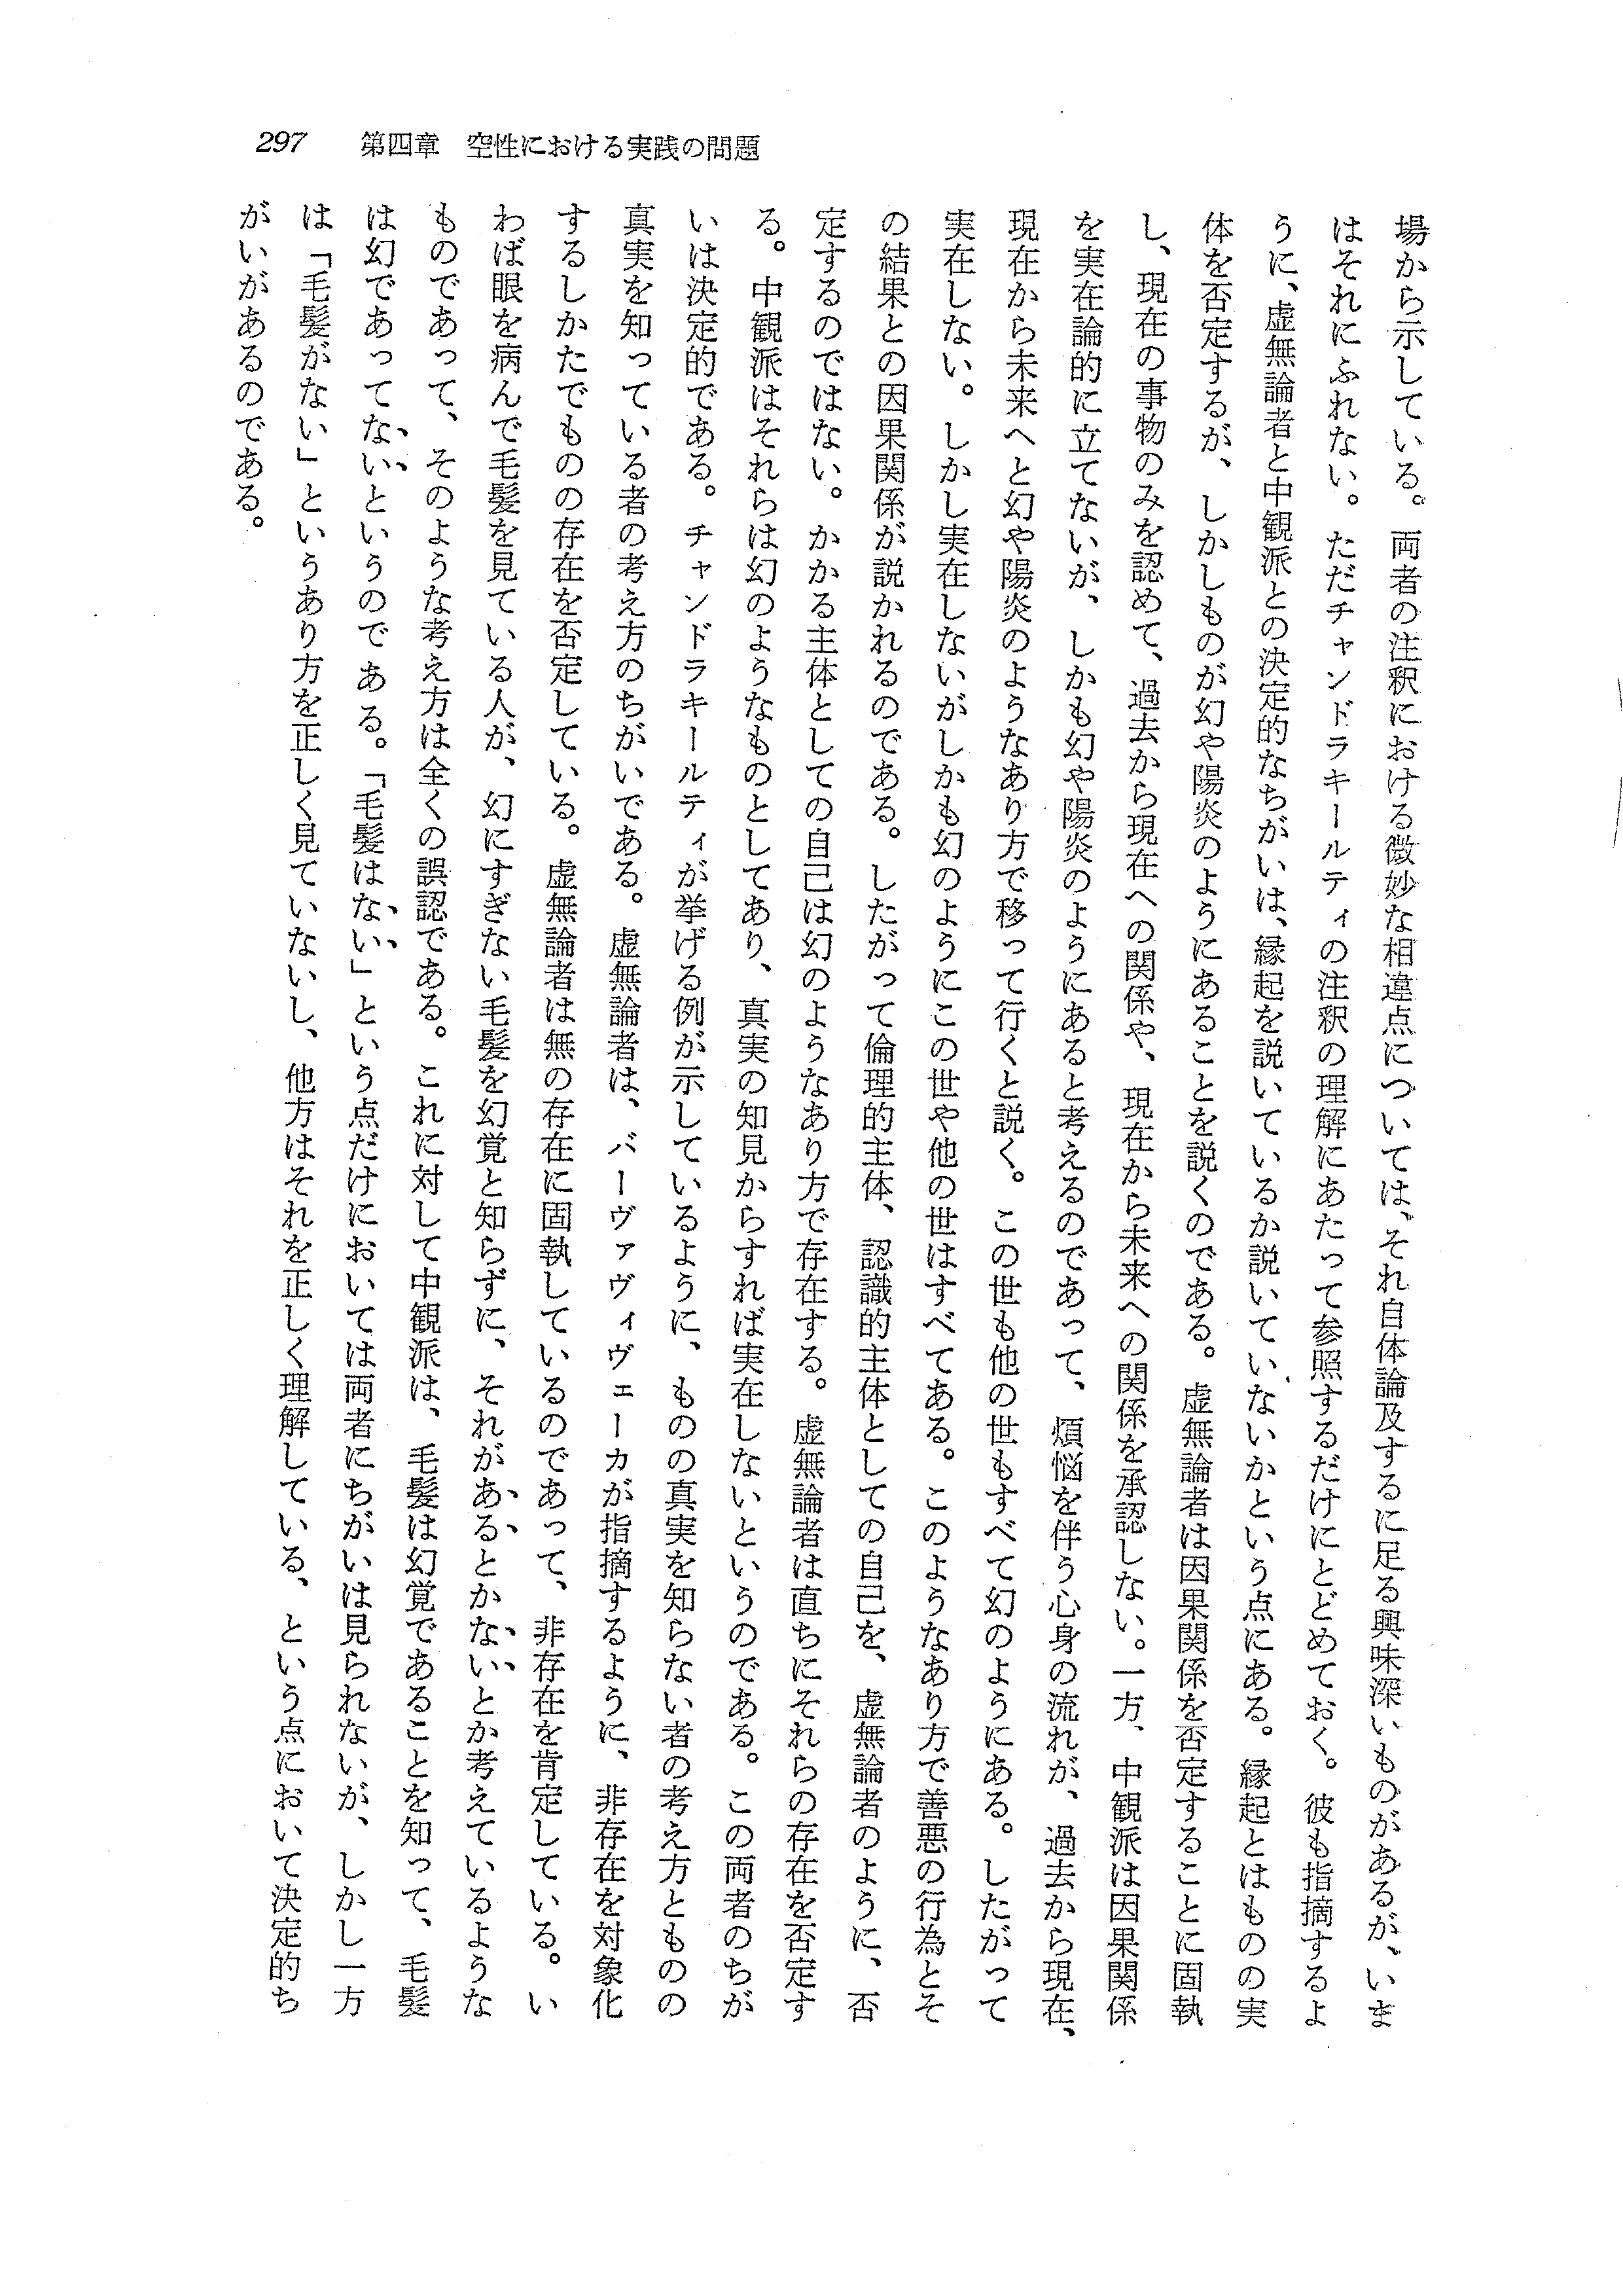 297　第四章　空性における実践の問題
場から示している。両者の注釈における微妙な相違点については、それ自体論及するに足る興味深いものがあるが、いま
はそれにふれない。ただチャンドラキールティの注釈の理解にあたって参照するだけにとどめておく。彼も指摘するよ
うに、虚無論者と中観派との決定的なちがいは、縁起を説いているか説いていないかという点にある。縁起とはものの実
体を否定するが、しかしものが幻や陽炎のようにあることを説くのである。虚無論者は因果関係を否定することに固執
し、現在の事物のみを認めて、過去から現在への関係や、現在から未来への関係を承認しない。一方、中観派は因果関係
を実在論的に立てないが、しかも幻や陽炎のようにあると考えるのであって、煩悩を伴う心身の流れが、過去から現在、
現在から未来へと幻や陽炎のようなあり方で移って行くと説く。この世も他の世もすべて幻のようにある。したがって
実在しない。しかし実在しないがしかも幻のようにこの世や他の世はすべてある。このようなあり方で善悪の行為とそ
の結果との因果関係が説かれるのである。したがって倫理的主体、認識的主体としての自己を、虚無論者のように、否
定するのではない。かかる主体としての自己は幻のようなあり方で存在する。虚無論者は直ちにそれらの存在を否定す
る。中観派はそれらは幻のようなものとしてあり、真実の知見からすれば実在しないというのである。この両者のちが
いは決定的である。チャンドラキールティが挙げる例が示しているように、ものの真実を知らない者の考え方とものの
真実を知っている者の考え方のちがいである。虚無論者は、バーヴァヴィヴェーカが指摘するように、非存在を対象化
するしかたでものの存在を否定している。虚無論者は無の存在に固執しているのであって、非存在を肯定している。い
わば眼を病んで毛髪を見ている人が、幻にすぎない毛髪を幻覚と知らずに、それがあるとかないとか考えているような
ものであって、そのような考え方は全くの誤認である。これに対して中観派は、毛髪は幻覚であることを知って、毛髪
は幻であってないというのである。「毛髪はない」という点だけにおいては両者にちがいは見られないが、しかし一方
は「毛髪がない」というあり方を正しく見ていないし、他方はそれを正しく理解している、という点において決定的ち
がいがあるのである。